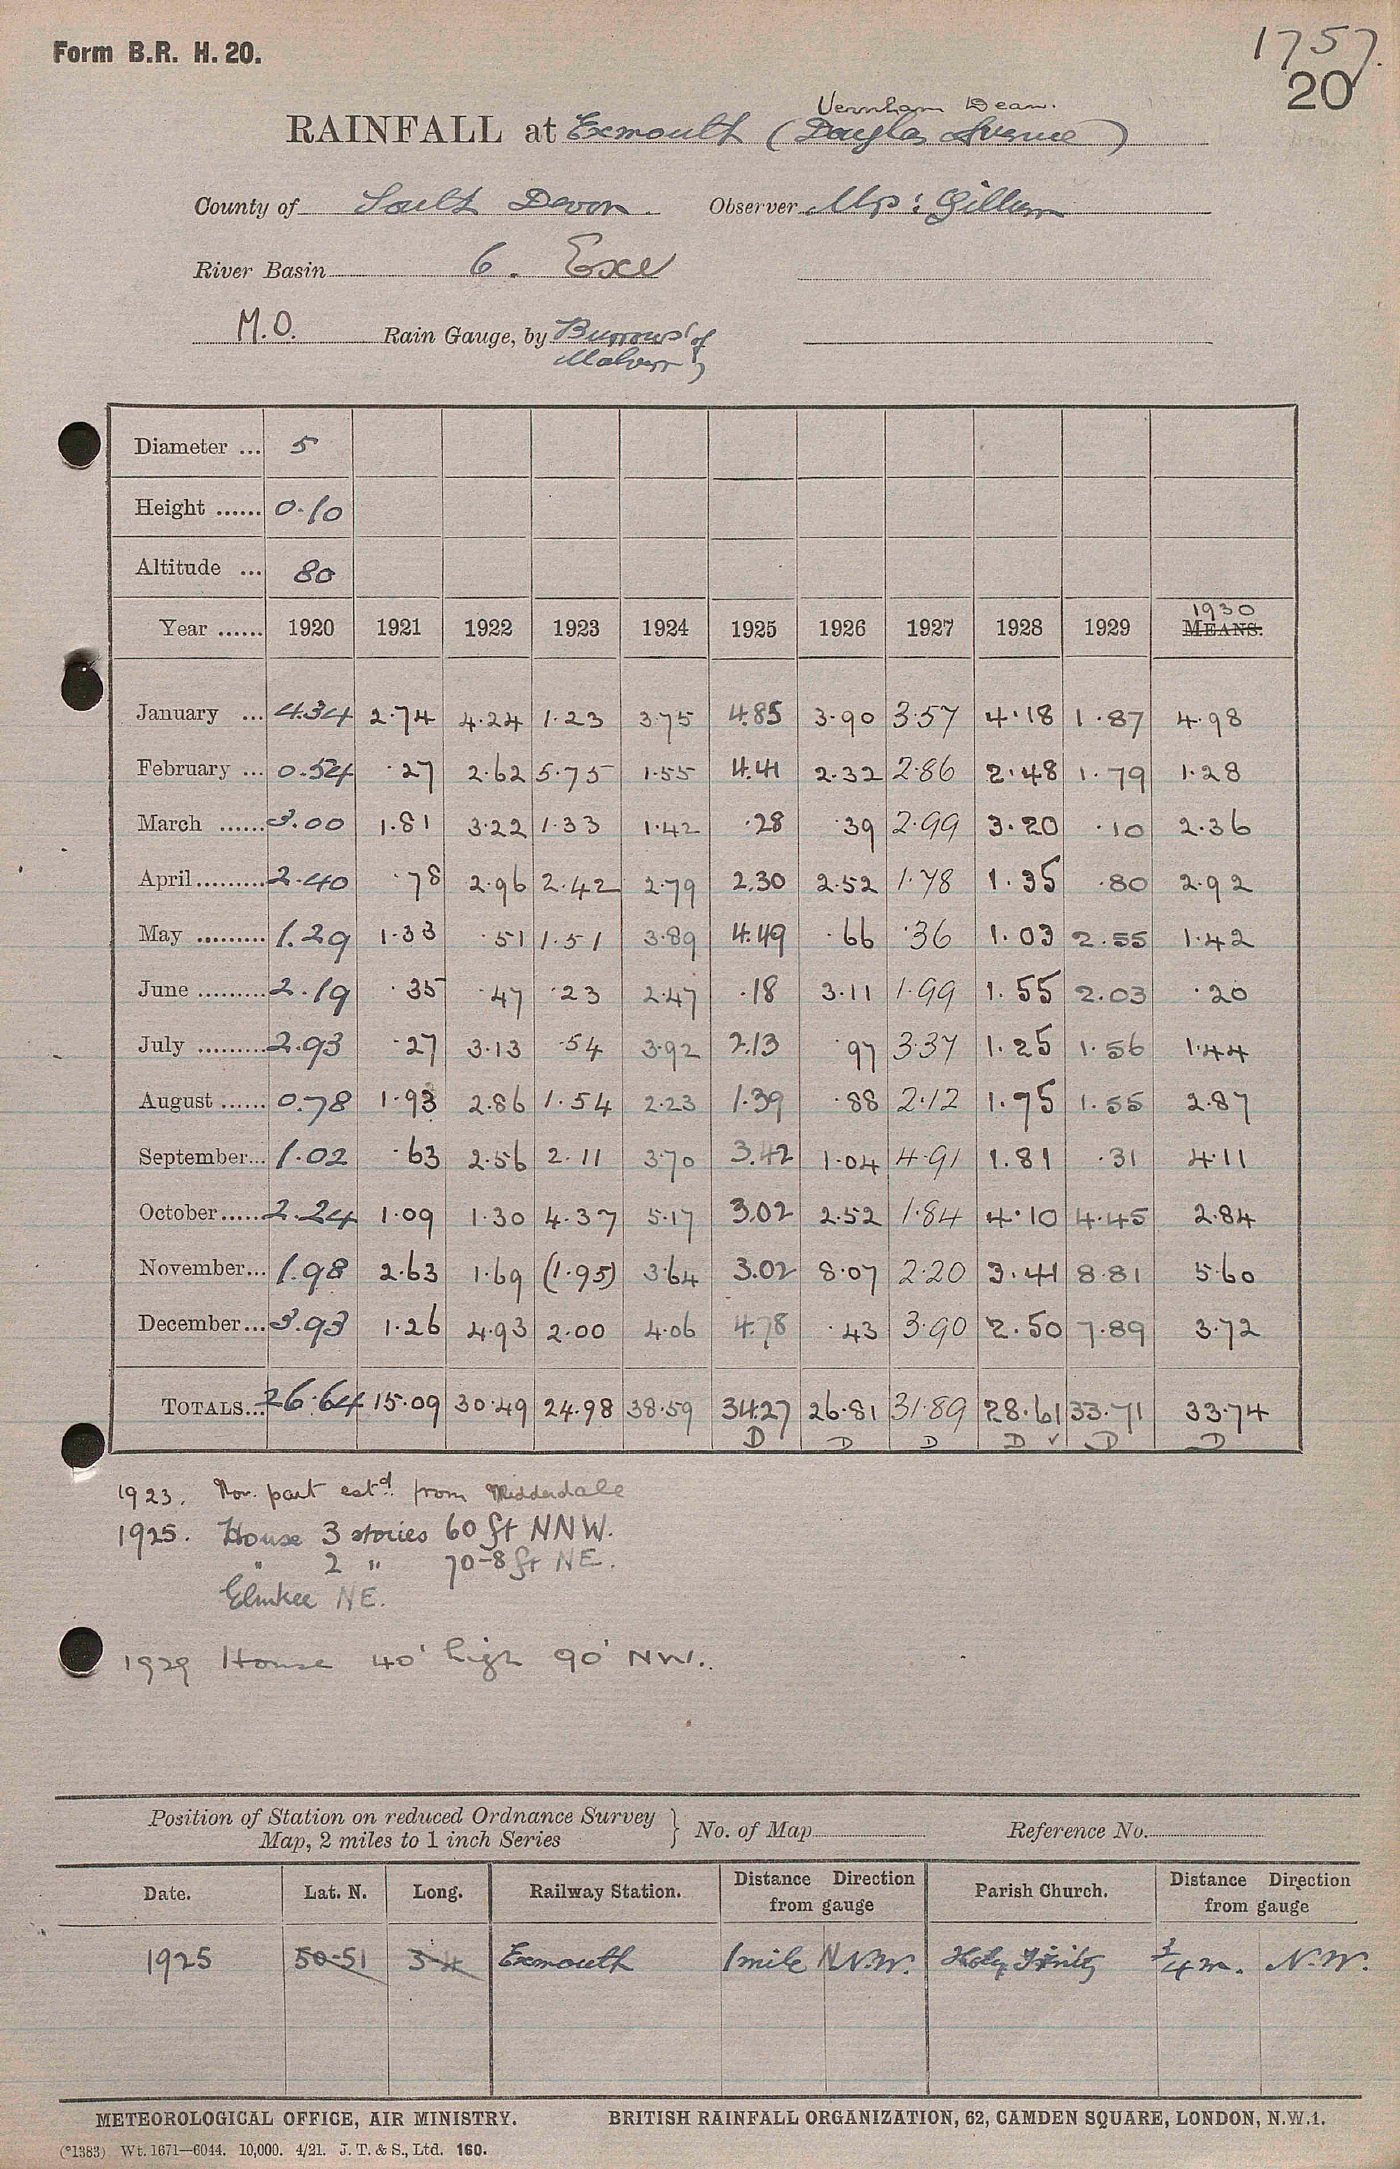 Form B.R. H. 20.
1757.
20
Vernham Dean.
RAINFALL at Exmouth (Douglas Avenue)
County of South Devon. Observer Mrs: Gillum
River Basin 6. Exe
M.O. Rain Gauge, by Burrows of
Malvern
Diameter ... 5
Height ...... 0.10
Altitude ... 80
1930
Year ...... 1920 1921 1922 1923 1924 1925 1926 1927 1928 1929 MEANS.
January ... 4.34 2.74 4.24 1.23 3.75 4.85 3.90 3.57 4.18 1.87 4.98
February ... 0.54 .27 2.62 5.75 1.55 4.41 2.32 2.86 2.48 1.79 1.28
March ...... 3.00 1.81 3.22 1.33 1.42 .28 .39 2.99 3.20 .10 2.36
April ......... 2.40 .78 2.96 2.42 2.79 2.30 2.52 1.78 1.35 .80 2.92
May ......... 1.29 1.33 .51 1.51 3.89 4.49 .66 .36 1.03 2.55 1.42
June ......... 2.19 .35 .47 .23 2.47 .18 3.11 1.99 1.55 2.03 .20
July ......... 2.93 .27 3.13 .54 3.92 2.13 .97 3.37 1.25 1.56 1.44
August ...... 0.78 1.93 2.86 1.54 2.23 1.39 .88 2.12 1.75 1.55 2.87
September... 1.02 .63 2.56 2.11 3.70 3.42 1.04 4.91 1.81 .31 4.11
October ..... 2.24 1.09 1.30 4.37 5.17 3.02 2.52 1.84 4.10 4.45 2.84
November... 1.98 2.63 1.69 (1.95) 3.64 3.02 8.07 2.20 3.41 8.81 5.60
December... 3.93 1.26 4.93 2.00 4.06 4.78 .43 3.90 2.50 7.89 3.72
TOTALS... 26.64 15.09 30.49 24.98 38.59 34.27 26.81 31.89 28.61 33.71 33.74
D D D D v D D
1923. Nov. part estd. from
1925. House 3 stories 60 ft NNW.
" 2 " 70-8 ft NE.
NE.
1929 House 40' high 90' NW.
Position of Station on reduced Ordnance Survey
Map, 2 miles to 1 inch Series } No. of Map Reference No.
Date. Lat. N. Long. Railway Station. Distance from gauge Direction Parish Church. Distance from gauge Direction
1925 50-51 3-4 Exmouth 1 mile NN.W. Holy Trinity 3/4 m. N.W.
METEOROLOGICAL OFFICE, AIR MINISTRY. BRITISH RAINFALL ORGANIZATION, 62, CAMDEN SQUARE, LONDON, N.W.1.
(*1383) Wt. 1671—6044. 10,000. 4/21. J. T. & S., Ltd. 160.